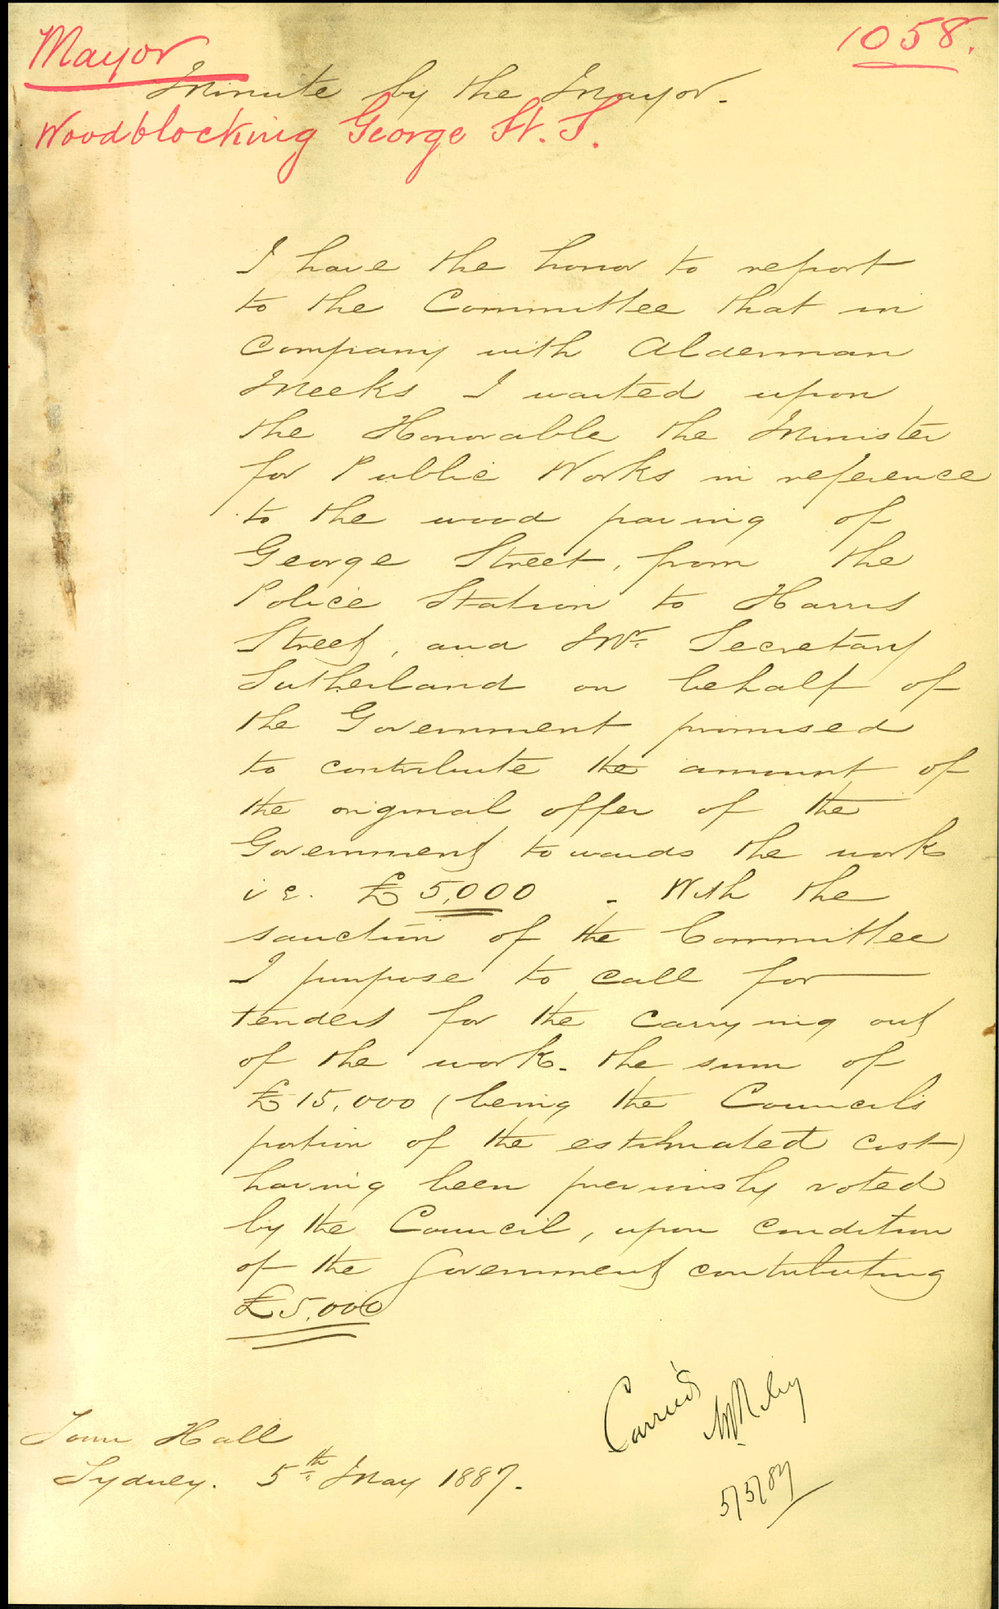 Mayor
1058.
Minute by the Mayor.
Woodblocking George St. S.
I have the honor to report
to the Committee that in
company with Alderman
Meeks I waited upon
the Honorable the Minister
for Public Works in reference
to the wood paving of
George Street, from the
Police Station to Harris
Street, and Mr. Secretary
Sutherland on behalf of
the Government promised
to contribute the amount of
the original offer of the
Government towards the work
i.e. £5,000. With the
sanction of the Committee
I purpose to call for
tenders for the carrying out
of the work. the sum of
£15,000 (being the Council's
portion of the estimated cost)
having been previously voted
by the Council, upon condition
of the Government contributing
£5,000
Carried
5/5/87
Town Hall
Sydney. 5th May 1887.